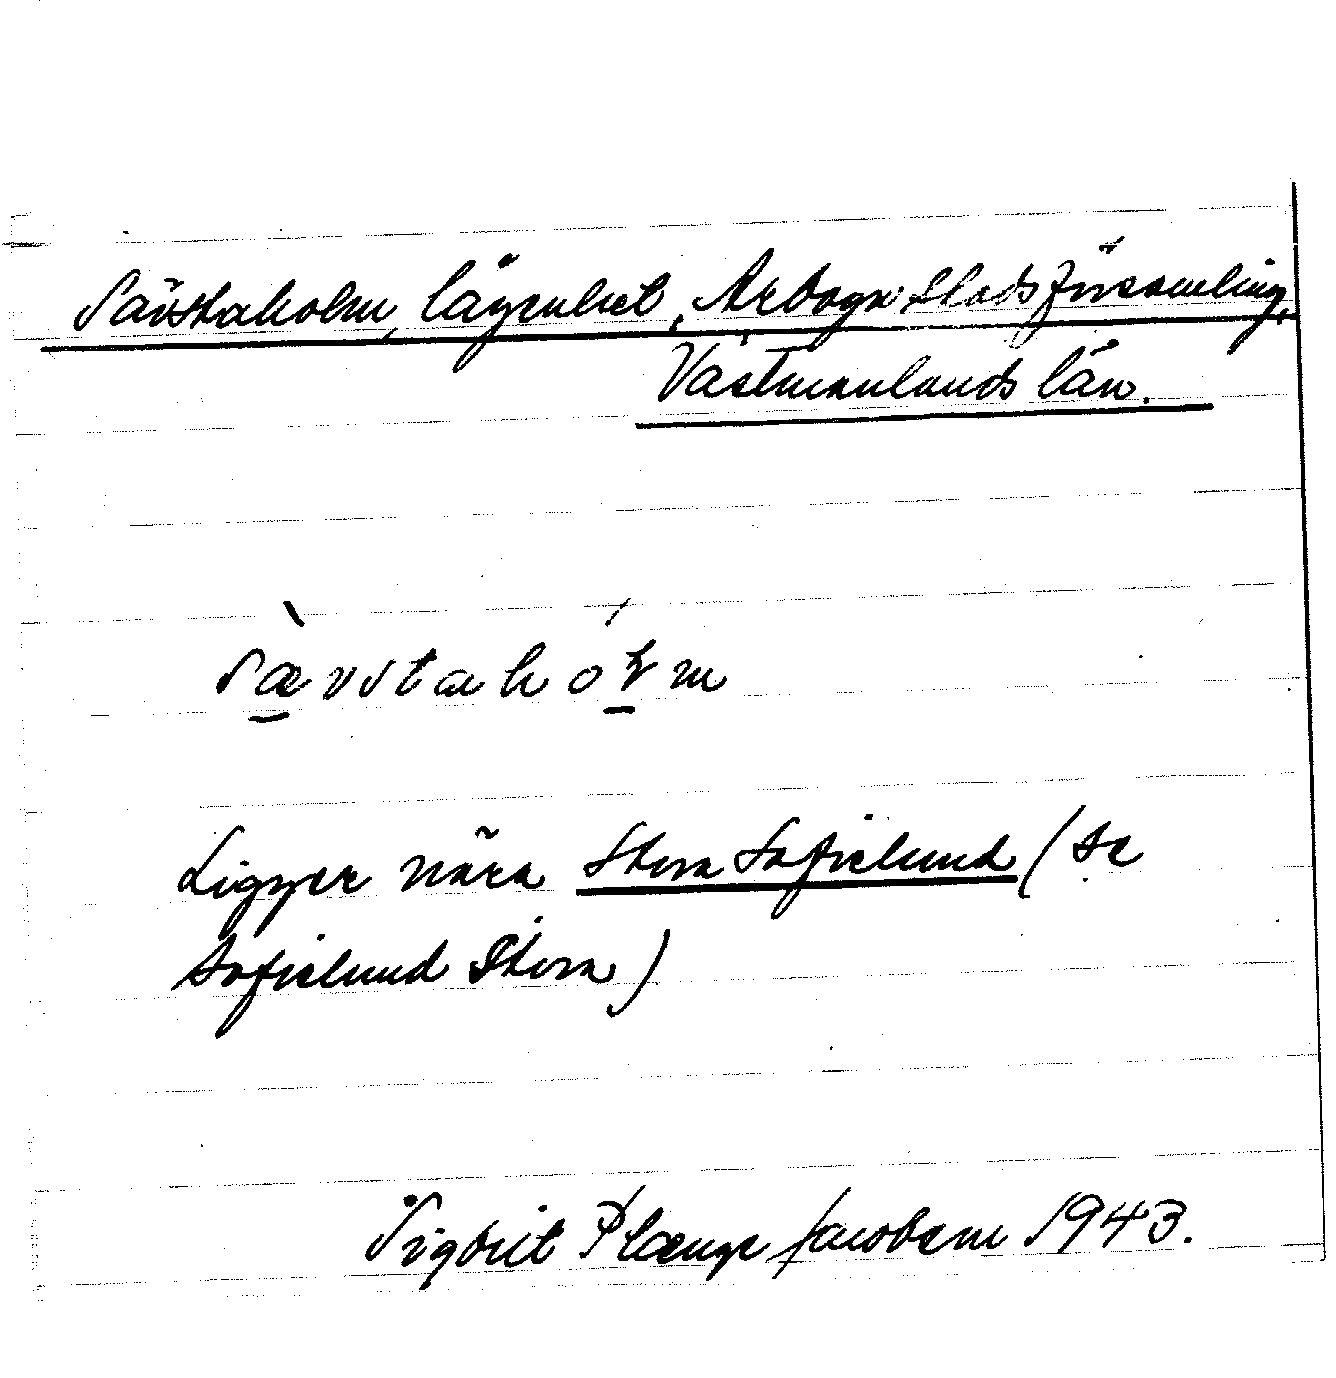 Sävstaholm, lägenhet, Arboga stadsförsamling,
Västmanlands län.
sævstahółm
Ligger nära Stora Sofielund (se
Sofielund Stora)
Sigbrit Plænge Jacobson 1943.